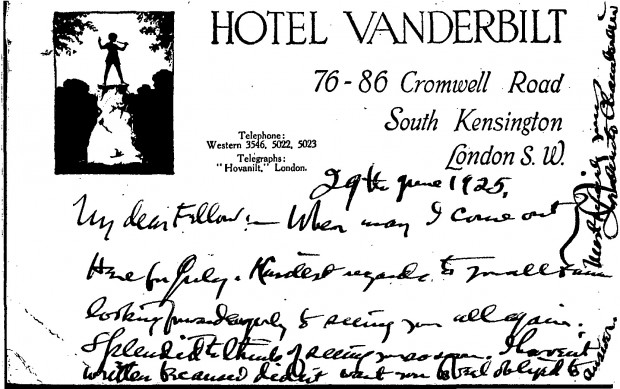 HOTEL VANDERBILT
76-86 Cromwell Road
South Kensington
London S. W.
Telephone:
Western 3546, 5022, 5023
Telegraphs:
"Hovanilt," London.
29th June 1925.
My dear Fellow:— When may I come out
Here for July. Kindest regards to you all &
looking forward eagerly to seeing you all again.
Splendid to think of seeing you soon. I haven't
written because I didn't want you to feel obliged to
answer.